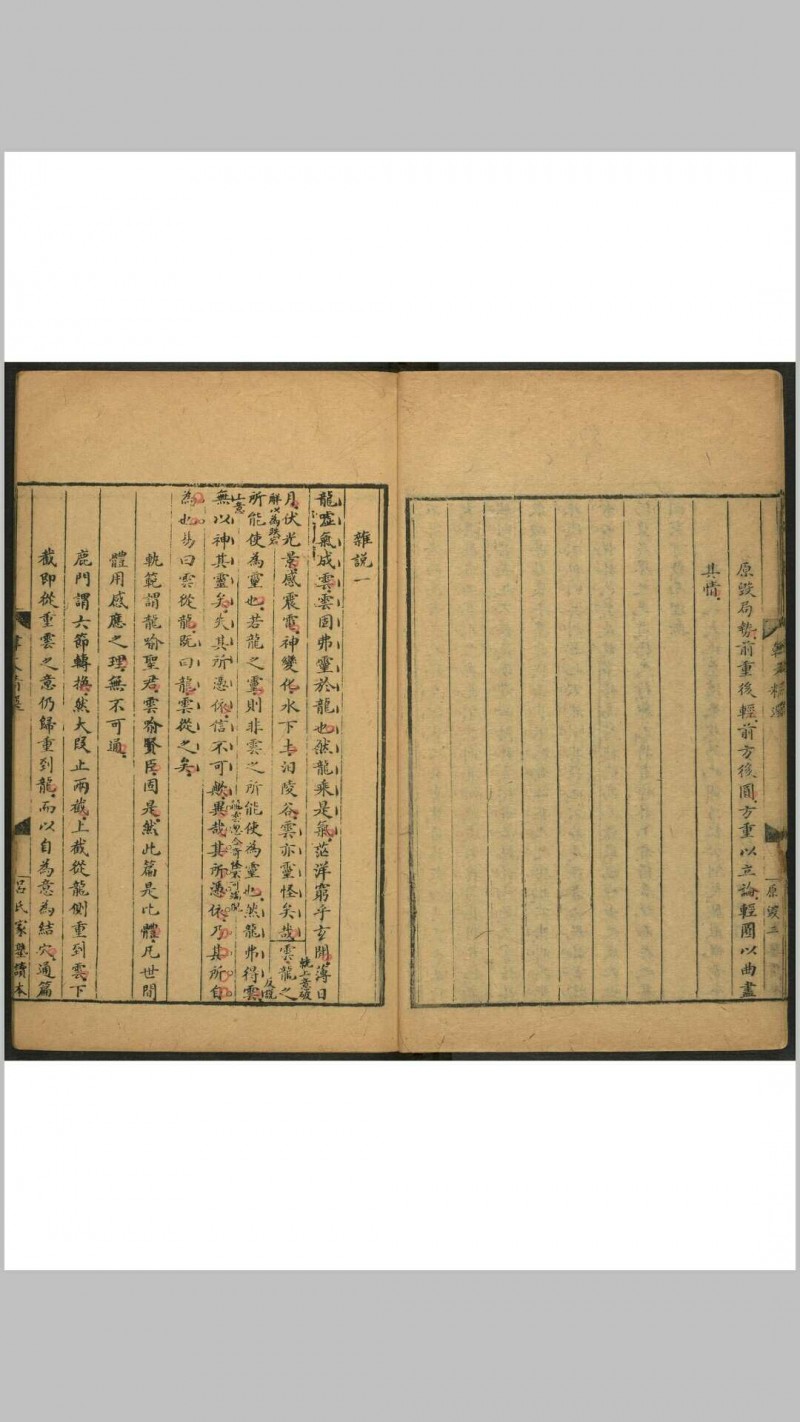 原毀局勢前重後輕前方後圓方重以立論輕圓以曲盡
其情
原毀五
雜說一
龍噓氣成雲雲固弗靈於龍也然龍乘是氣茫洋窮乎玄閒薄日
月伏光景感震電神變化水下土汩陵谷雲亦靈怪矣哉雲龍之
所能使為靈也若龍之靈則非雲之所能使為靈也然龍弗得雲
無以神其靈矣失其所憑依信不可歟異哉其所憑依乃其所自
為也易曰雲從龍既曰龍雲從之矣
軌範謂龍喻聖君雲喻賢臣固是然此篇是比體凡世間
體用感應之理無不可通
鹿門謂六節轉換然大段止兩截上截從龍側重到雲下
截即從重雲之意仍歸重到龍而以自為意為結穴通篇
呂氏家塾讀本